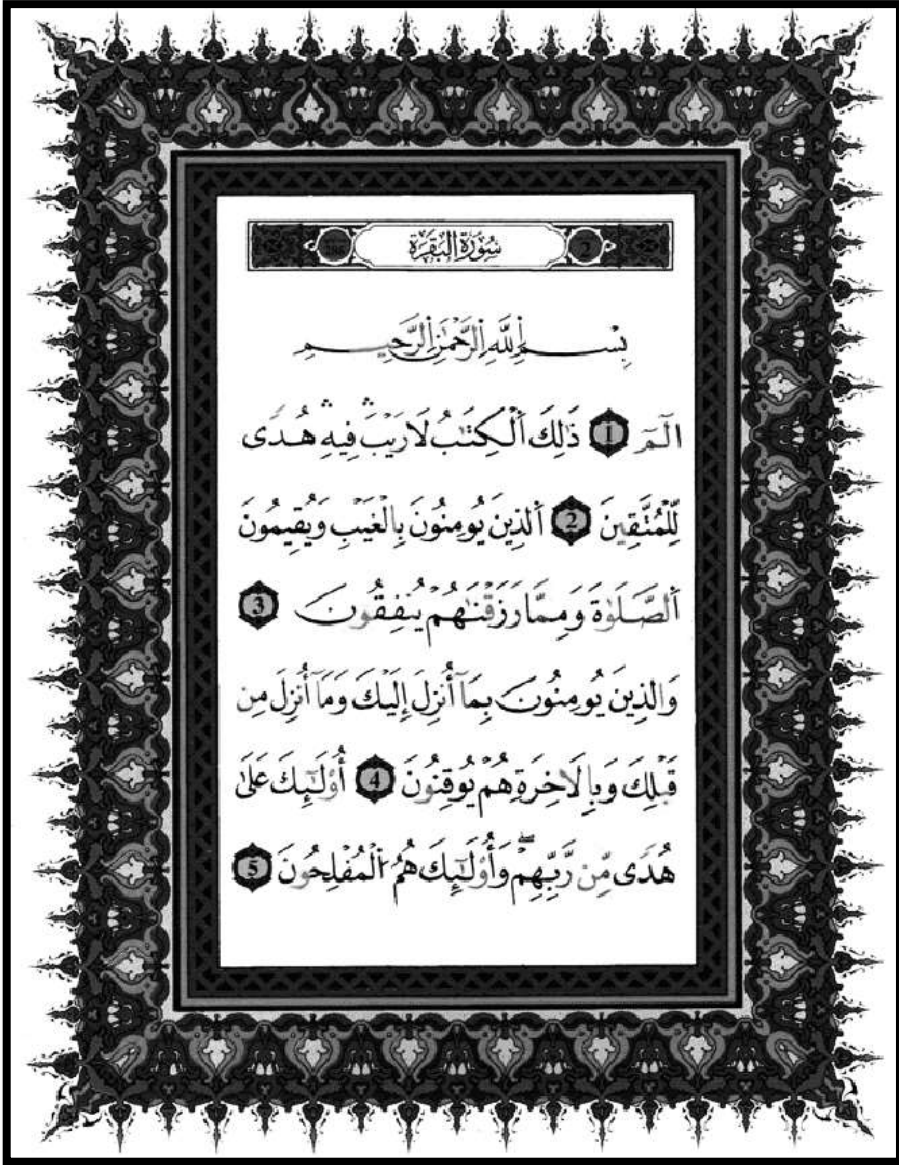 2 سُورَةُ الْبَقَرَةِ
بِسْمِ اِللَّهِ اِلرَّحْمَٰنِ اِلرَّحِيمِ
الَٓمِّٓ 1 ذَٰلِكَ اَلْكِتَٰبُ لَا رَيْبَۛ فِيهِۛ هُدًى
لِّلْمُتَّقِينَ 2 اَلذِينَ يُومِنُونَ بِالْغَيْبِ وَيُقِيمُونَ
اَلصَّلَوٰةَ وَمِمَّا رَزَقْنَٰهُمْ يُنفِقُونَ 3
وَالذِينَ يُومِنُونَ بِمَآ أُنزِلَ إِلَيْكَ وَمَآ أُنزِلَ مِن
قَبْلِكَ وَبِالَاخِرَةِ هُمْ يُوقِنُونَ 4 أُوْلَٰٓئِكَ عَلَىٰ
هُدًى مِّن رَّبِّهِمْۖ وَأُوْلَٰٓئِكَ هُمُ اُلْمُفْلِحُونَ 5